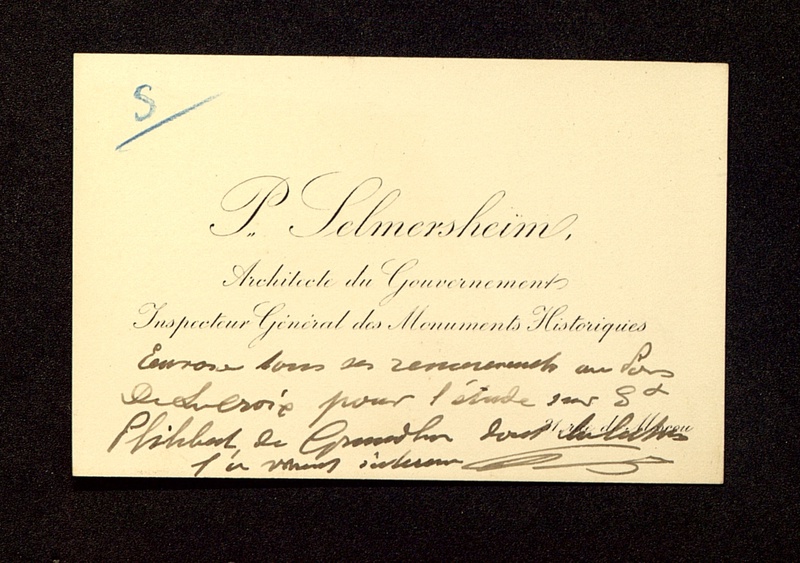 S
P. Selmersheim,
Architecte du Gouvernement
Inspecteur Général des Monuments Historiques
Envoie tous ses remerciements au Père
De La Croix pour l'étude sur St
Philibert de Grandlieu dont
31 rue de Moscou
l'a vivement intéressé